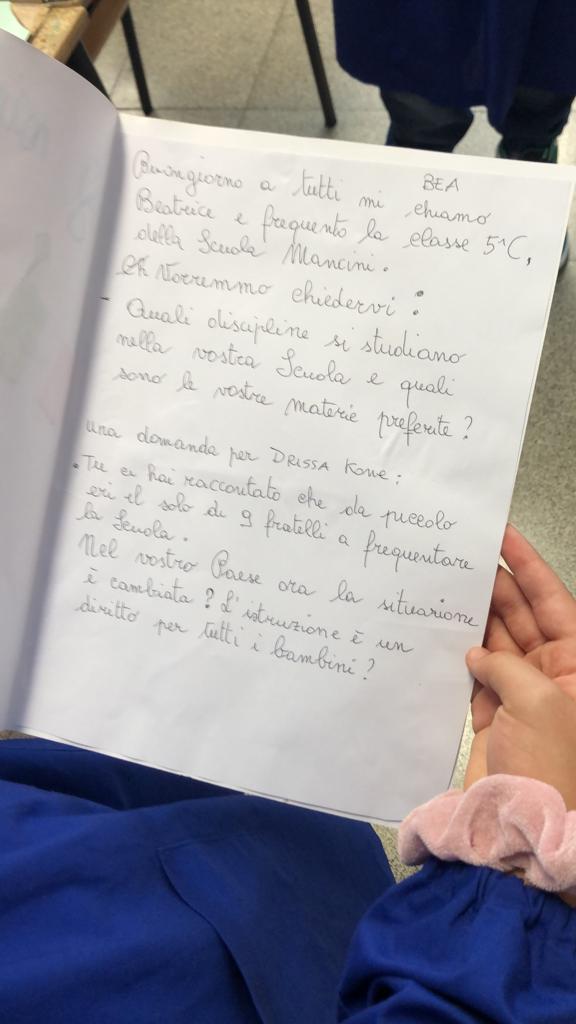 BEA
Buongiorno a tutti mi chiamo
Beatrice e frequento la classe 5^C,
della Scuola Mancini.
Vorremmo chiedervi :
- Quali discipline si studiano
nella vostra Scuola e quali
sono le vostre materie preferite?
una domanda per DRISSA Kone:
• Tu ci hai raccontato che da piccolo
eri il solo di 9 fratelli a frequentare
la Scuola.
Nel vostro Paese ora la situazione
è cambiata? L'istruzione è un
diritto per tutti i bambini?